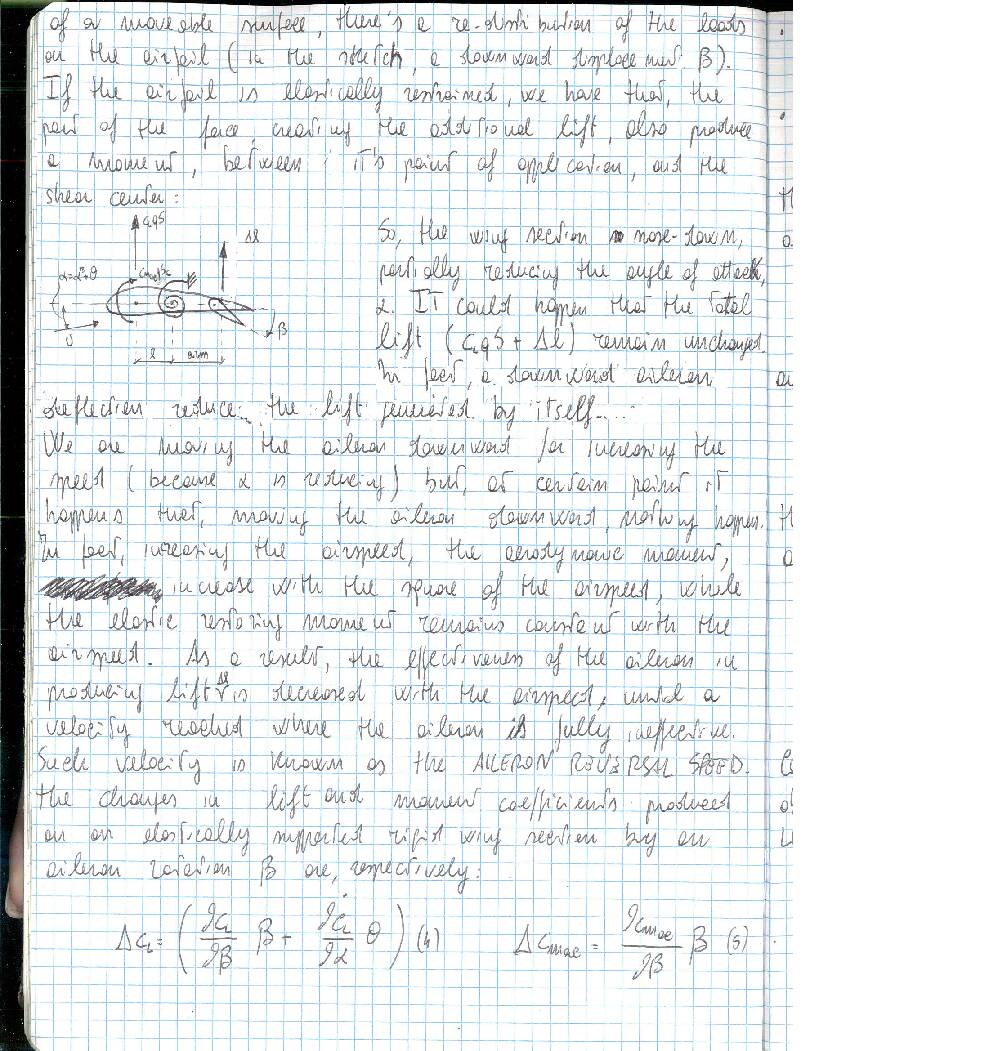 of a moveable surface, there's a re-distribution of the loads
on the airfoil (in the sketch, a downward displacement β).
If the airfoil is elastically restrained, we have that, the
part of the force, creating the additional lift, also produce
a moment, between it's point of application, and the
shear center:
CLqS
Δl
α=αr+θ
β
U
l arm
So, the wing section nose-down,
partially reducing the angle of attack,
α. IT could happen that the total
lift (CLqS + Δl) remain unchanged.
In fact, a downward aileron
deflection reduce the lift generated by itself.....
We are moving the aileron downward for increasing the
speed (because α is reducing) but, at certain point it
happens that, moving the aileron downward, nothing happen.
In fact, increasing the airspeed, the aerodynamic moment,
increase with the square of the airspeed, while
the elastic restoring moment remains constant with the
airspeed. As a result, the effectiveness of the aileron in
producing lift Δl is decreased with the airspeed, until a
velocity reached where the aileron is fully ineffective.
Such velocity is known as the AILERON REVERSAL SPEED.
the changes in lift and moment coefficients produced
on an elastically supported rigid wing section by an
aileron rotation β are, respectively:
ΔcL = (∂cL/∂β β + ∂cL/∂α θ) (4) Δcmac = ∂cmac/∂β β (5)